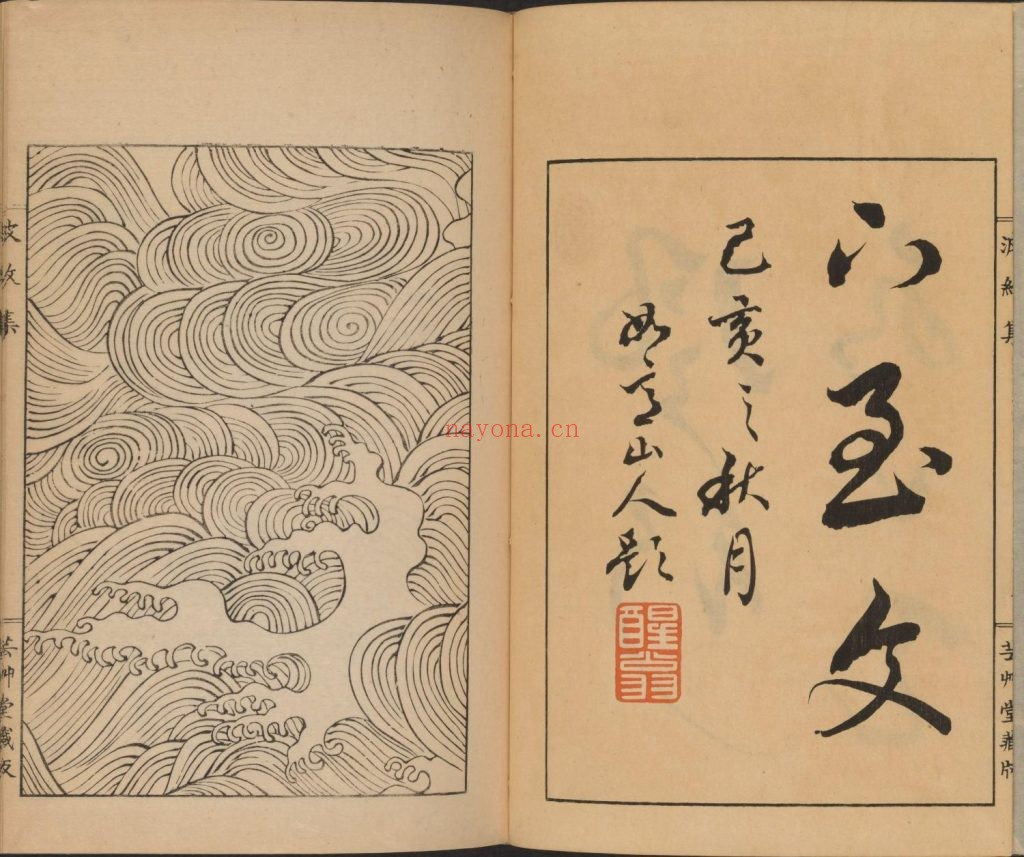 下至文
己亥之秋月
如意山人題
醒翁
波紋集
芸艸堂藏版
波紋集
芸艸堂藏版
nayona.cn